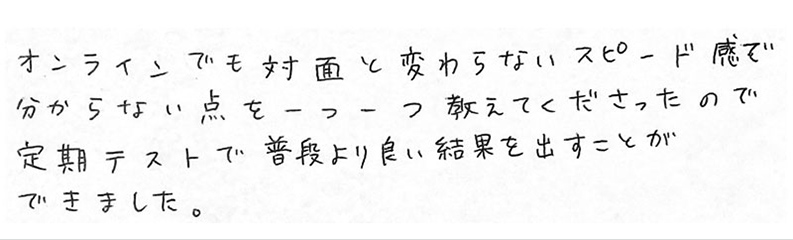 オンラインでも対面と変わらないスピード感で
分からない点を一つ一つ教えてくださったので
定期テストで普段より良い結果を出すことが
できました。